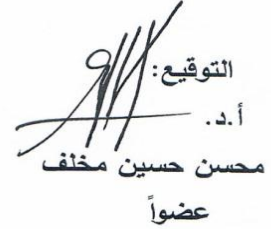 التوقيع:
أ.د.
محسن حسين مخلف
عضواً